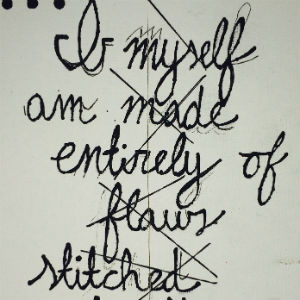 I myself
am made
entirely of
flaws
stitched